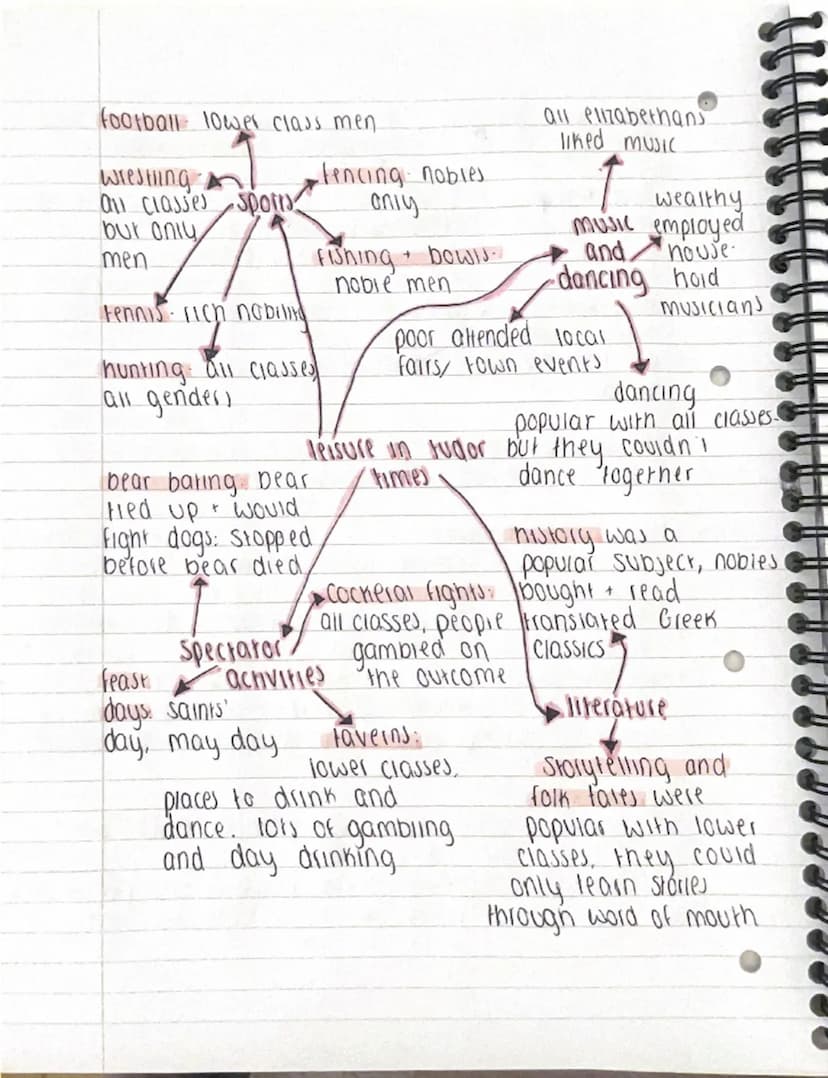 football- lower class men
wrestling-
all classes
but only
men
sports
fencing- nobles
only
fishing + bowls-
noble men
tennis- rich nobility
hunting- all classes
all genders
all elizabethans
liked music
music
and
dancing
wealthy
employed
house-
hold
musicians
poor attended local
fairs/ town events
dancing
popular with all classes-
but they couldn't
dance together
leisure in tudor
times
bear bating- bear
tied up + would
fight dogs: stopped
before bear died
spectator
activities
cockeral fights:
all classes, people
gambled on
the outcome
feast
days: saints'
day, may day
taverns:
lower classes,
places to drink and
dance. lots of gambling
and day drinking
history was a
popular subject, nobles
bought + read
translated Greek
classics
literature
storytelling and
folk tales were
popular with lower
classes, they could
only learn stories
through word of mouth